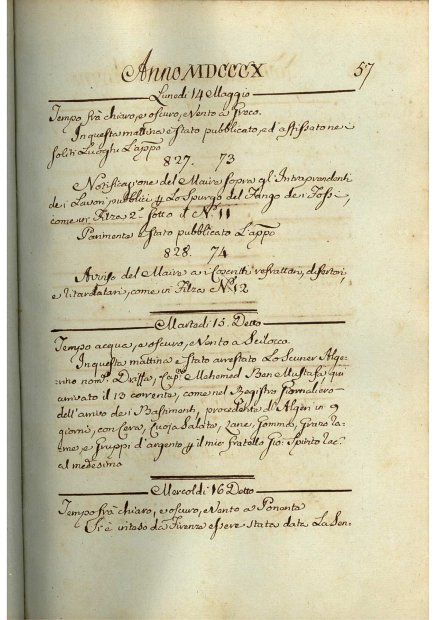 Anno MDCCCX 57
Lunedi 14 Maggio
Tempo frà chiaro, e oscuro, e Vento a Greco.
In questa mattina è stato pubblicato, ed affisso ne i
soliti Luoghi L'app.o
827. 73
Notificazione del Maire sopra gl'Intraprendenti
de i Lavori pubblici p Lo Spurgo del Fango de i Fossi,
come in Filza 2.a sotto il N.o 11
Parimente è stato pubblicato L'app.o
828. 74
Avviso del Maire a i Coscritti refrattari, disertori,
e ritardatari, come in Filza N.o 12
Martedi 15. Detto
Tempo acqua, e oscuro, e Vento a Scilocco.
In questa mattina è stato arrestato Lo Scuner Alge-
rino nom.o Cap.o Mehemed Ben Mustafà qui
arrivato il 13 corrente, come nel Registro Giornaliero
dell'arrivo de i Bastimenti, procedente d'Algeri in 9
giorni, con Cera, Cuoja Salate, Lane, Gomma, Grano
e Gruppi d'argento, p il mio Fratello Gio: Spirito
al medesimo
Mercoldi 16 Detto
Tempo frà chiaro, e oscuro, e Vento a Ponente
Si è inteso da Firenze essere stata data La Sen-